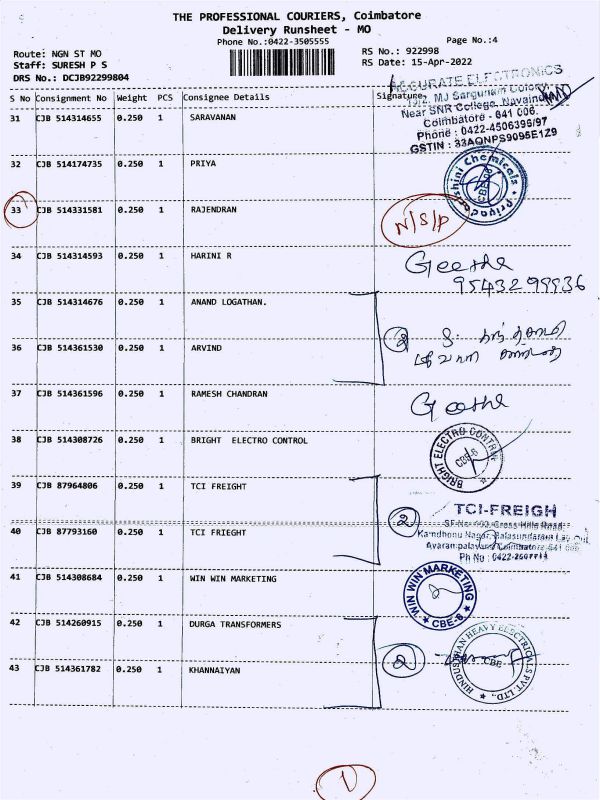 THE PROFESSIONAL COURIERS, Coimbatore
Delivery Runsheet - MO
Phone No.:0422-3505555
Page No.:4
Route: NGN ST MO
RS No.: 922998
Staff: SURESH P S
RS Date: 15-Apr-2022
DRS No.: DCJB92299804
S No Consignment No Weight PCS Consignee Details Signature
ACCURATE ELECTRONICS
MJ Sargunam Colony,
Near SNR College, Navaindia
Coimbatore - 641 006.
Phone : 0422-4506396/97
GSTIN : 33AQNPS9095E1Z9
31 CJB 514314655 0.250 1 SARAVANAN
32 CJB 514174735 0.250 1 PRIYA
Priyadarshini Chemicals
33 CJB 514331581 0.250 1 RAJENDRAN N/S/P
34 CJB 514314593 0.250 1 HARINI R Geetha
9543299936
35 CJB 514314676 0.250 1 ANAND LOGATHAN.
2
36 CJB 514361530 0.250 1 ARVIND
37 CJB 514361596 0.250 1 RAMESH CHANDRAN Geetha
38 CJB 514308726 0.250 1 BRIGHT ELECTRO CONTROL
BRIGHT ELECTRO CONTROL
CBE-6
39 CJB 87964806 0.250 1 TCI FREIGHT
2
TCI-FREIGH
40 CJB 87793160 0.250 1 TCI FRIEGHT
41 CJB 514308684 0.250 1 WIN WIN MARKETING
WIN WIN MARKETING
CBE-6
42 CJB 514260915 0.250 1 DURGA TRANSFORMERS
2
HINDUSTHAN HEAVY ELECTRICALS PVT. LTD.,
CBE
43 CJB 514361782 0.250 1 KHANNAIYAN
1